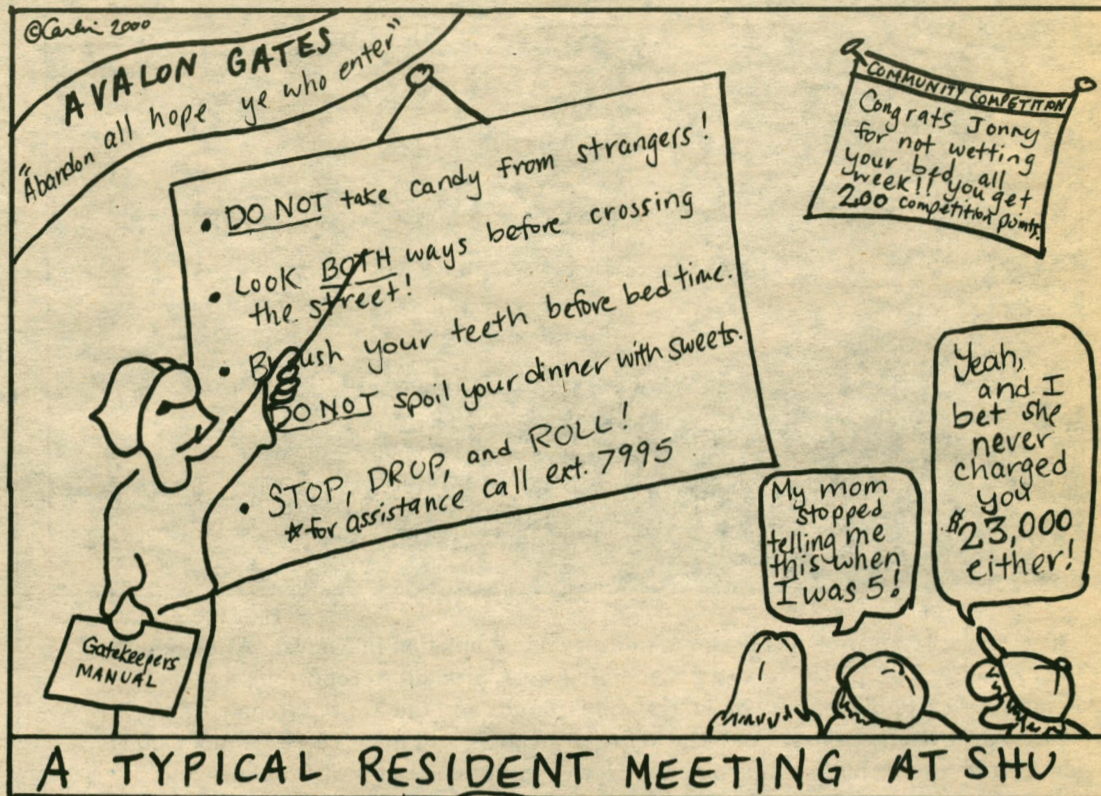 © Carlin 2000
AVALON GATES
"Abandon all hope ye who enter"
• DO NOT take candy from strangers!
• Look BOTH ways before crossing
the street!
• Brush your teeth before bedtime.
DO NOT spoil your dinner with sweets.
• STOP, DROP, and ROLL!
*for assistance call ext. 7995
COMMUNITY COMPETITION
Congrats Jonny
for not wetting
your bed all
week!! you get
200 competition points.
Yeah,
and I
bet she
never
charged
you
$23,000
either!
My mom
stopped
telling me
this when
I was 5!
Gatekeepers
MANUAL
A TYPICAL RESIDENT MEETING AT SHU